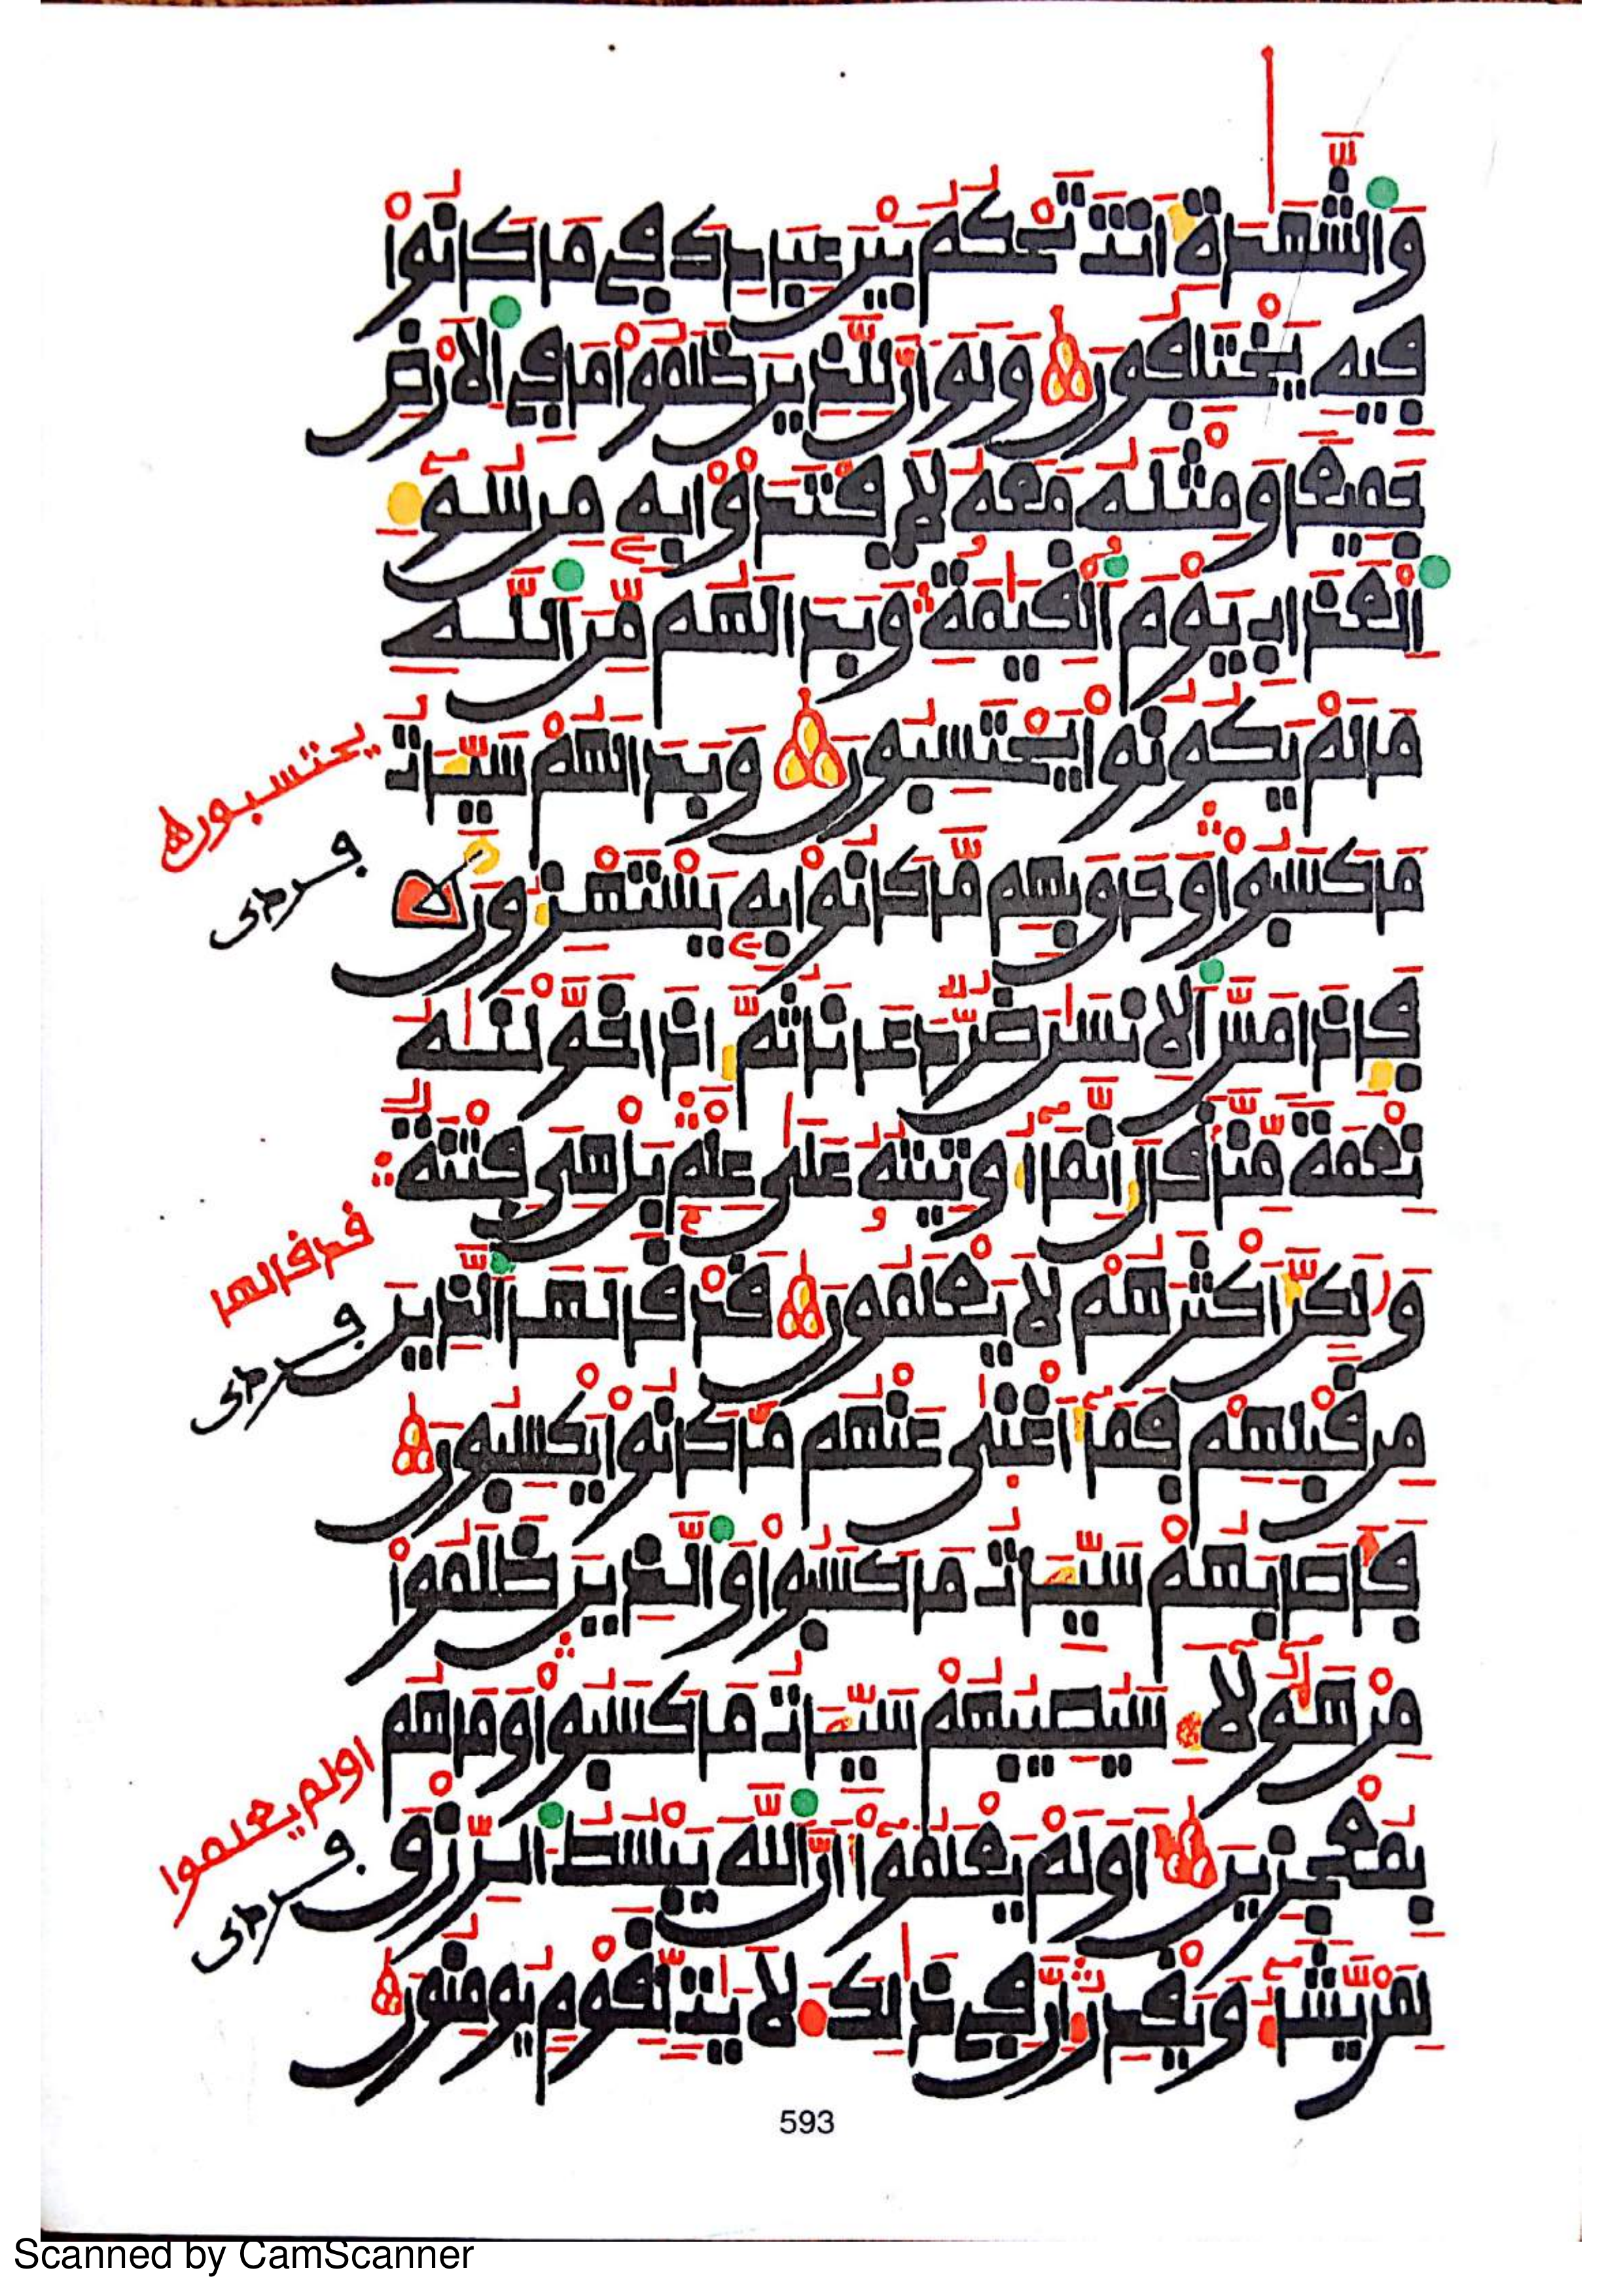 وَالشَّهَدَةِ أَنتَ تَحْكُمُ بَيْنَ عِبَادِكَ فِي مَا كَانُواْ
فِيهِ يَخْتَلِفُونَ وَلَوْ أَنَّ لِلَّذِينَ ظَلَمُواْ مَا فِي الْأَرْضِ
جَمِيعًا وَمِثْلَهُ مَعَهُ لَافْتَدَوْاْ بِهِ مِن سُوءِ
الْعَذَابِ يَوْمَ الْقِيَمَةِ وَبَدَا لَهُم مِّنَ اللَّهِ
مَا لَمْ يَكُونُواْ يَحْتَسِبُونَ وَبَدَا لَهُمْ سَيِّـَٔاتُ
يحتسبون
مَا كَسَبُواْ وَحَاقَ بِهِم مَّا كَانُواْ بِهِ يَسْتَهْزِءُونَ
فَإِذَا مَسَّ الْإِنسَنَ ضُرٌّ دَعَانَا ثُمَّ إِذَا خَوَّلْنَهُ
نِعْمَةً مِّنَّا قَالَ إِنَّمَا أُوتِيتُهُ عَلَى عِلْمٍ بَلْ هِيَ فِتْنَةٌ
وَلَكِنَّ أَكْثَرَهُمْ لَا يَعْلَمُونَ قَدْ قَالَهَا الَّذِينَ
قد قالها
مِن قَبْلِهِمْ فَمَا أَغْنَى عَنْهُم مَّا كَانُواْ يَكْسِبُونَ
فَأَصَابَهُمْ سَيِّـَٔاتُ مَا كَسَبُواْ وَالَّذِينَ ظَلَمُواْ
مِنْ هَؤُلَاءِ سَيُصِيبُهُمْ سَيِّـَٔاتُ مَا كَسَبُواْ وَمَا هُم
بِمُعْجِزِينَ أَوَلَمْ يَعْلَمُواْ أَنَّ اللَّهَ يَبْسُطُ الرِّزْقَ
اولم يعلموا
لِمَن يَشَاءُ وَيَقْدِرُ إِنَّ فِي ذَلِكَ لَأَيَتٍ لِّقَوْمٍ يُومِنُونَ
593
Scanned by CamScanner